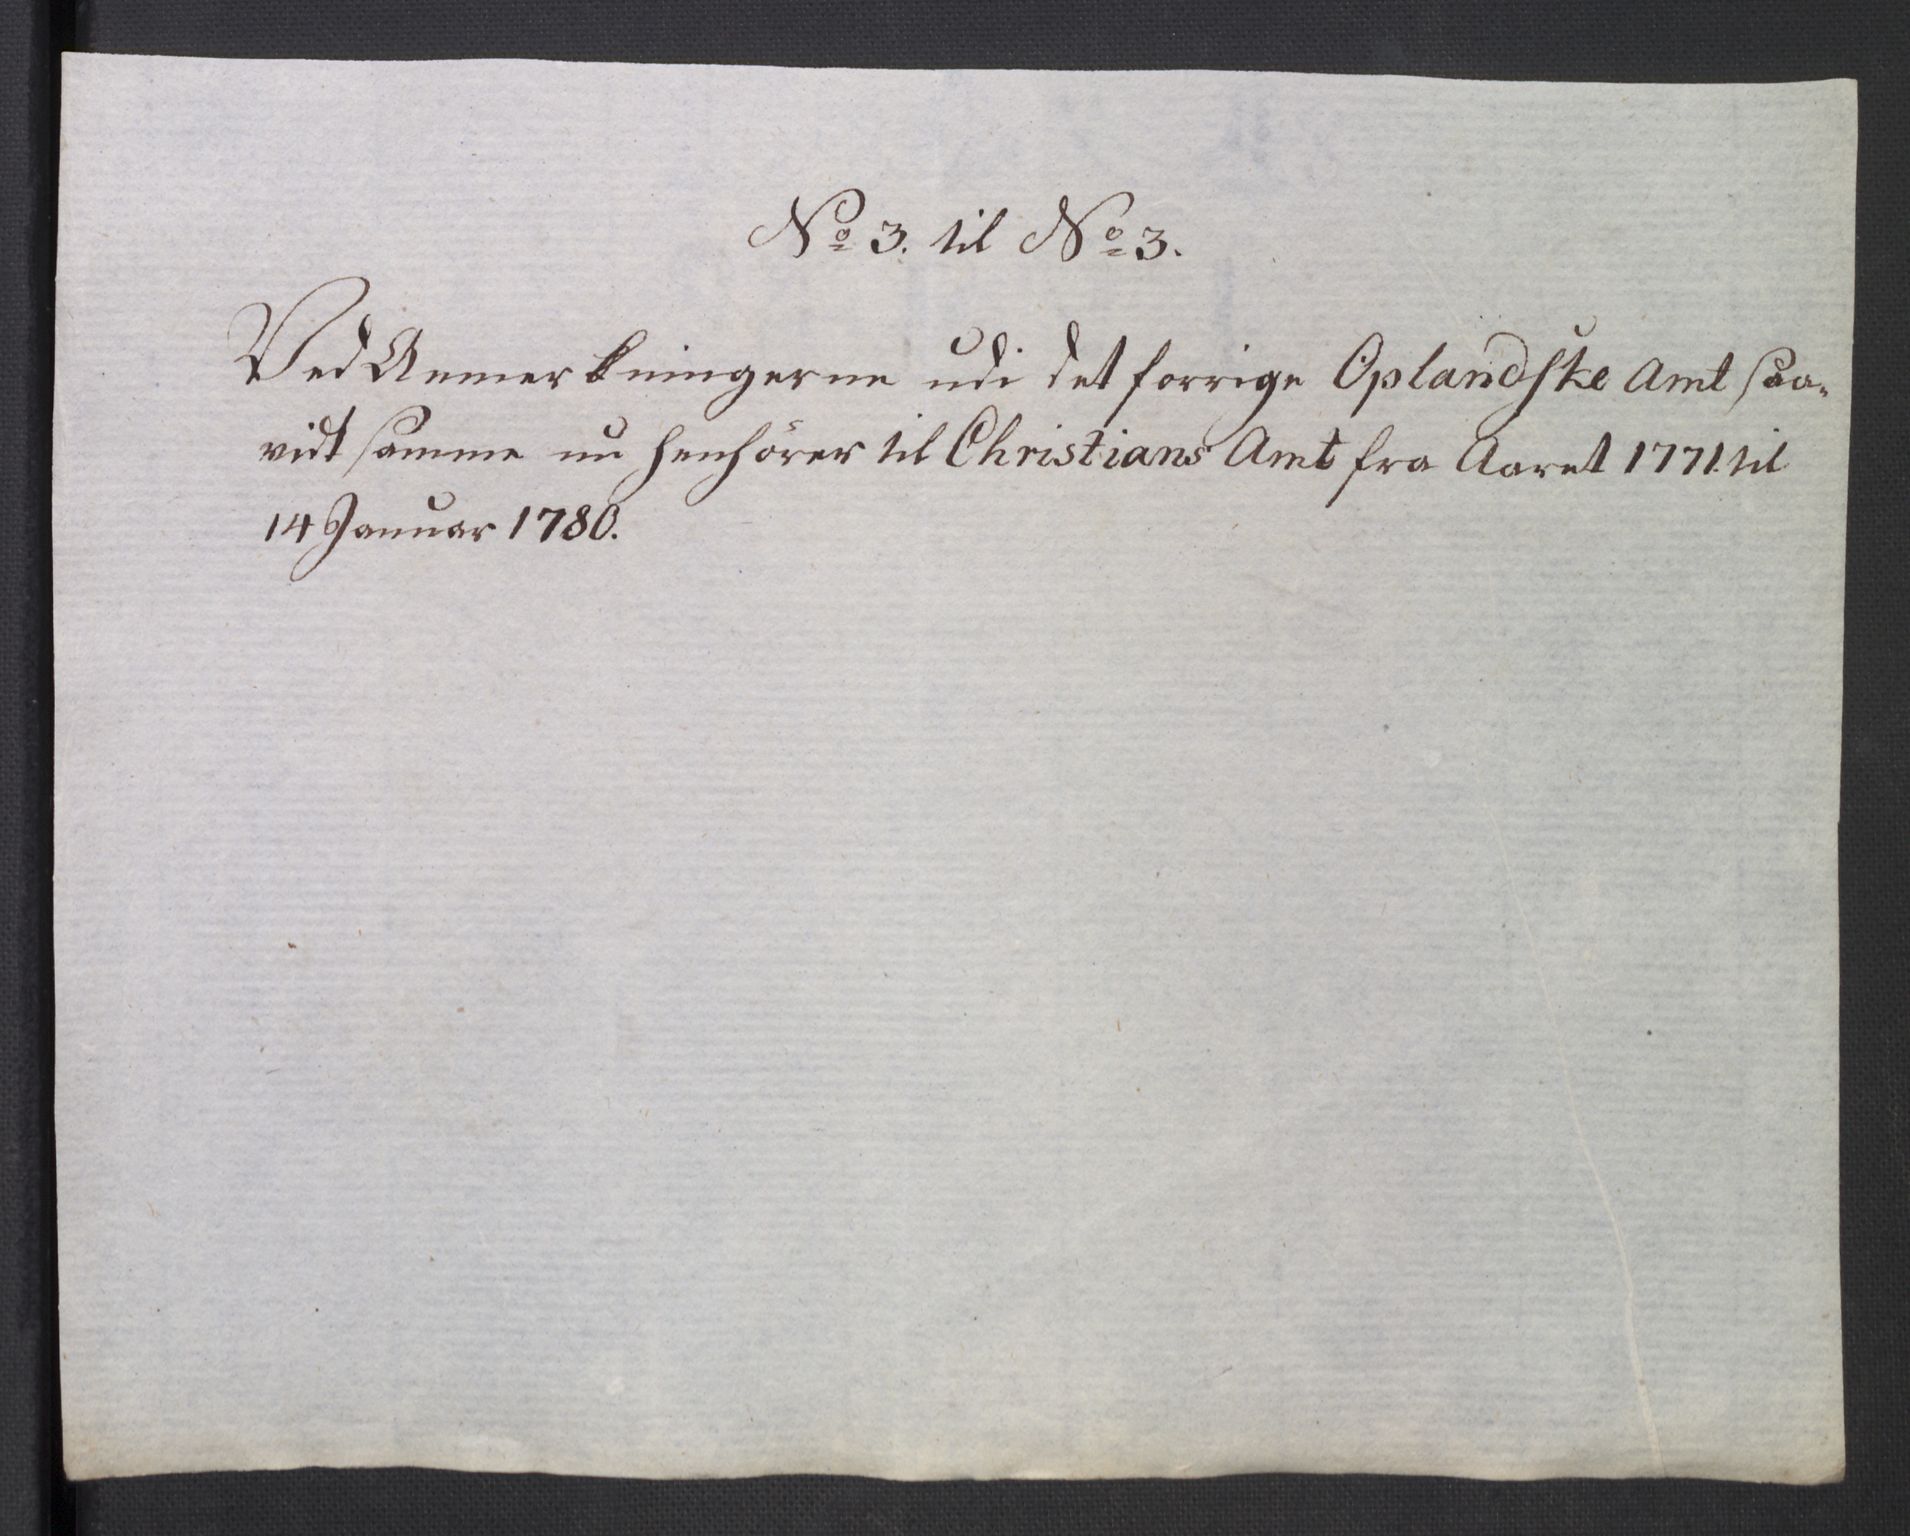 No 3. til No 3.
Ved Anmerkningerne udi det forrige Oplandske Amt saa-
vidt samme nu henhörer til Christians Amt fra Aaret 1771 til
14 Januar 1780.